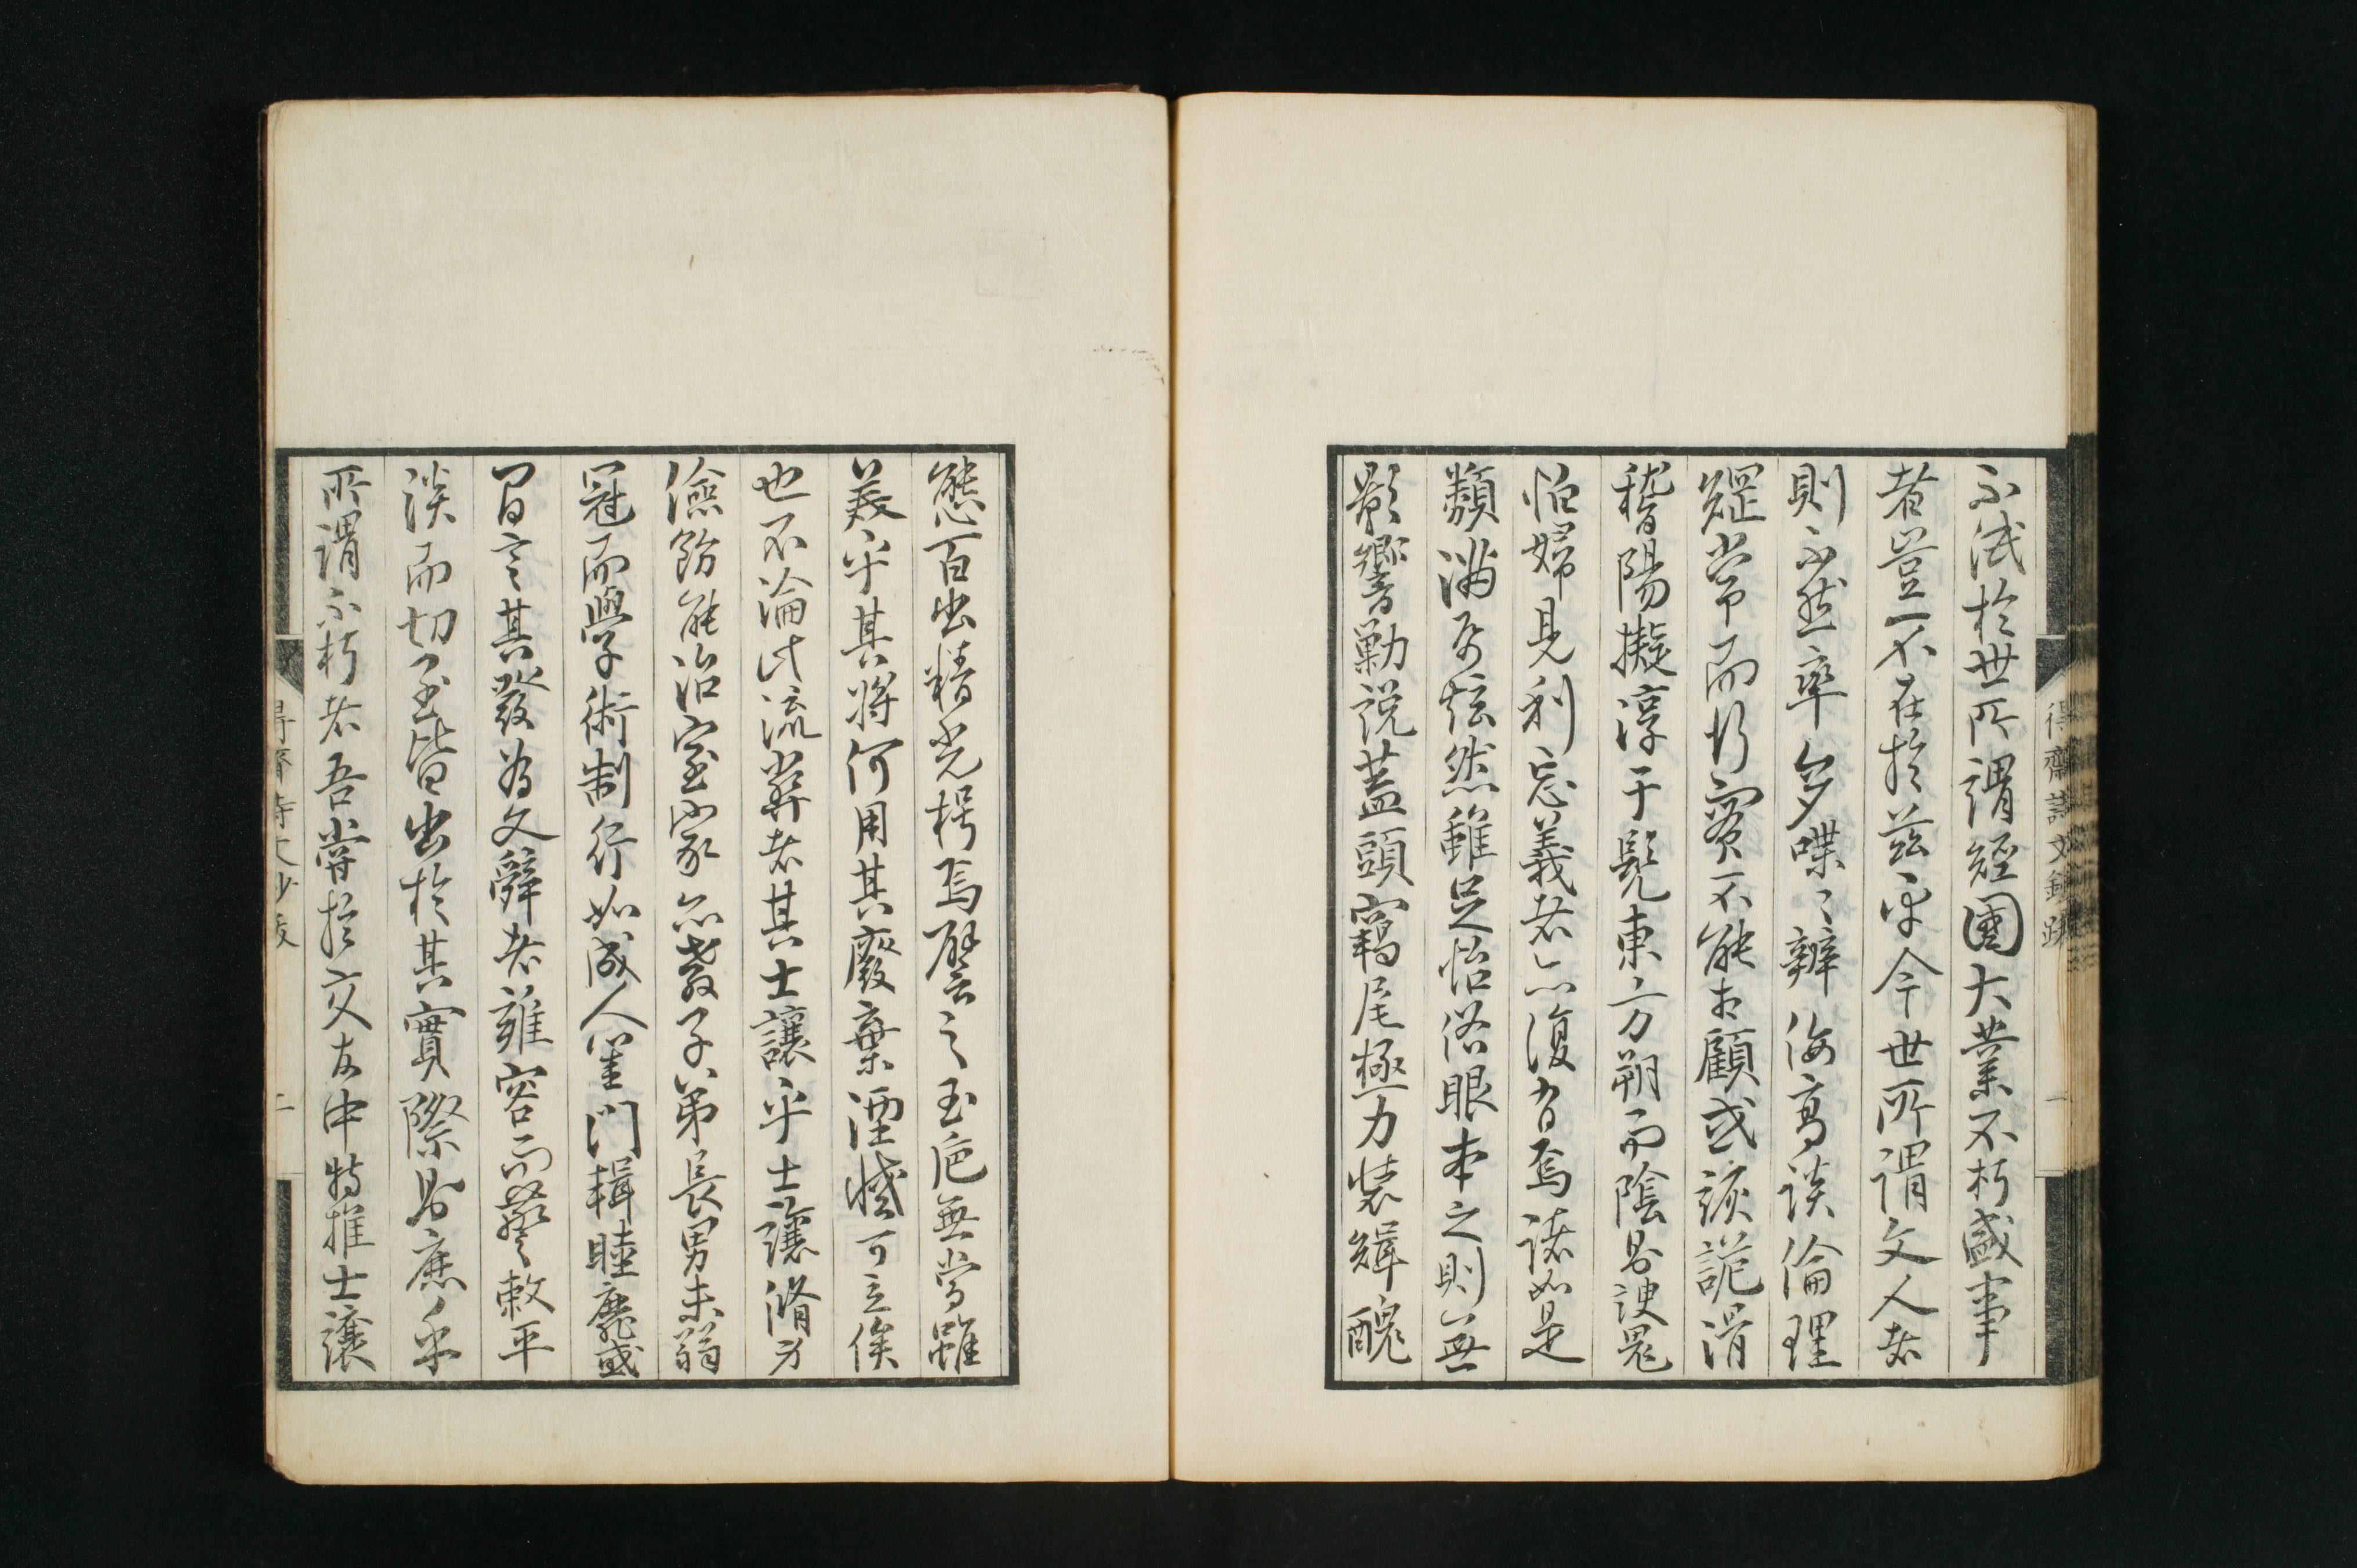 不泯於世所謂經國大業不朽盛事
者豈不在於茲乎今世所謂文人者
則不然率多喋々辨侮高談倫理
綱常而行實不能相顧或詼詭滑
稽陽擬淳于髡東方朔而陰田諛罵
怕婦見利忘義者亦復有焉諸如是
類滿局炫然雖足怡俗眼本之則無
影響勦說蓋頭竊尾極力裝緝醜
態百出精光梏焉譬之玉巵無當雖
美乎其將何用其廢棄湮滅可立俟
也不淪此流弊者其士讓乎士讓脩身
儉飭能治室家亦教子弟長男未弱
冠而學術制行如成人闔門輯睦靡或
間言其發為文辭者雍容而警敕平
淡而切至皆出於其實際則庶乎
所謂不朽者吾嘗於交友中特推士讓
得齋詩文鈔跋
一
得齋詩文鈔跋
二